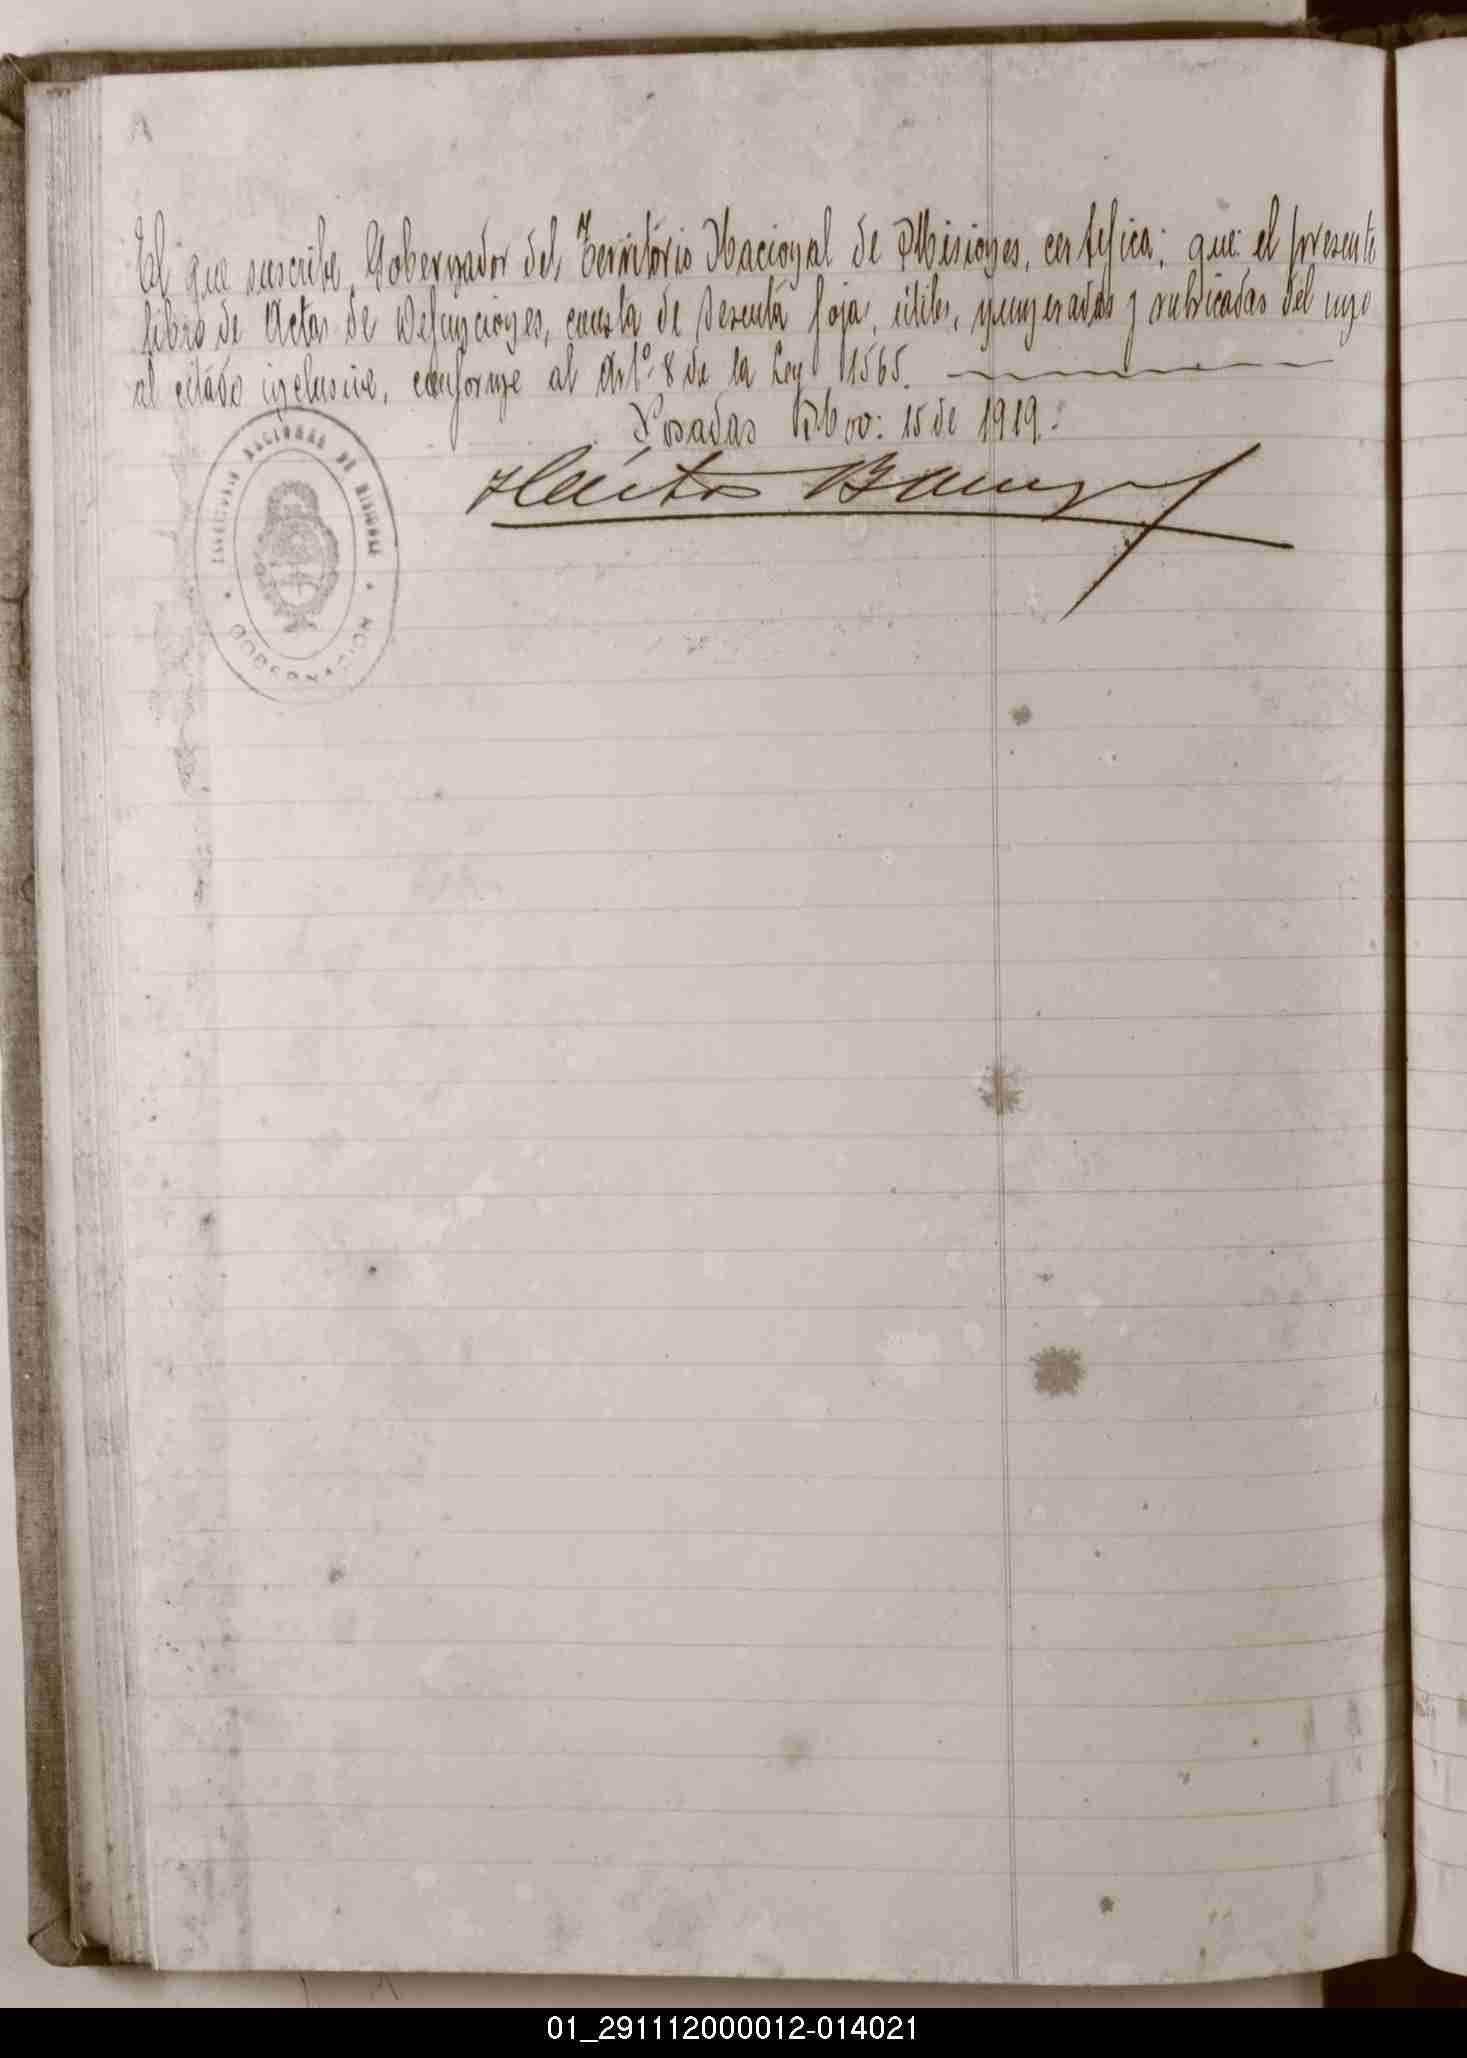 El que suscribe, Gobernador del Territorio Nacional de Misiones, certifica; que: el presente
libro de Actas de Defunciones, consta de sesenta fojas, útiles, numeradas y rubricadas del uno
al citado inclusive, conforme al Artº. 8 de la Ley 1565.
Posadas Nov: 15 de 1919.
Héctor
TERRITORIO NACIONAL DE MISIONES
GOBERNACION
01_291112000012-014021